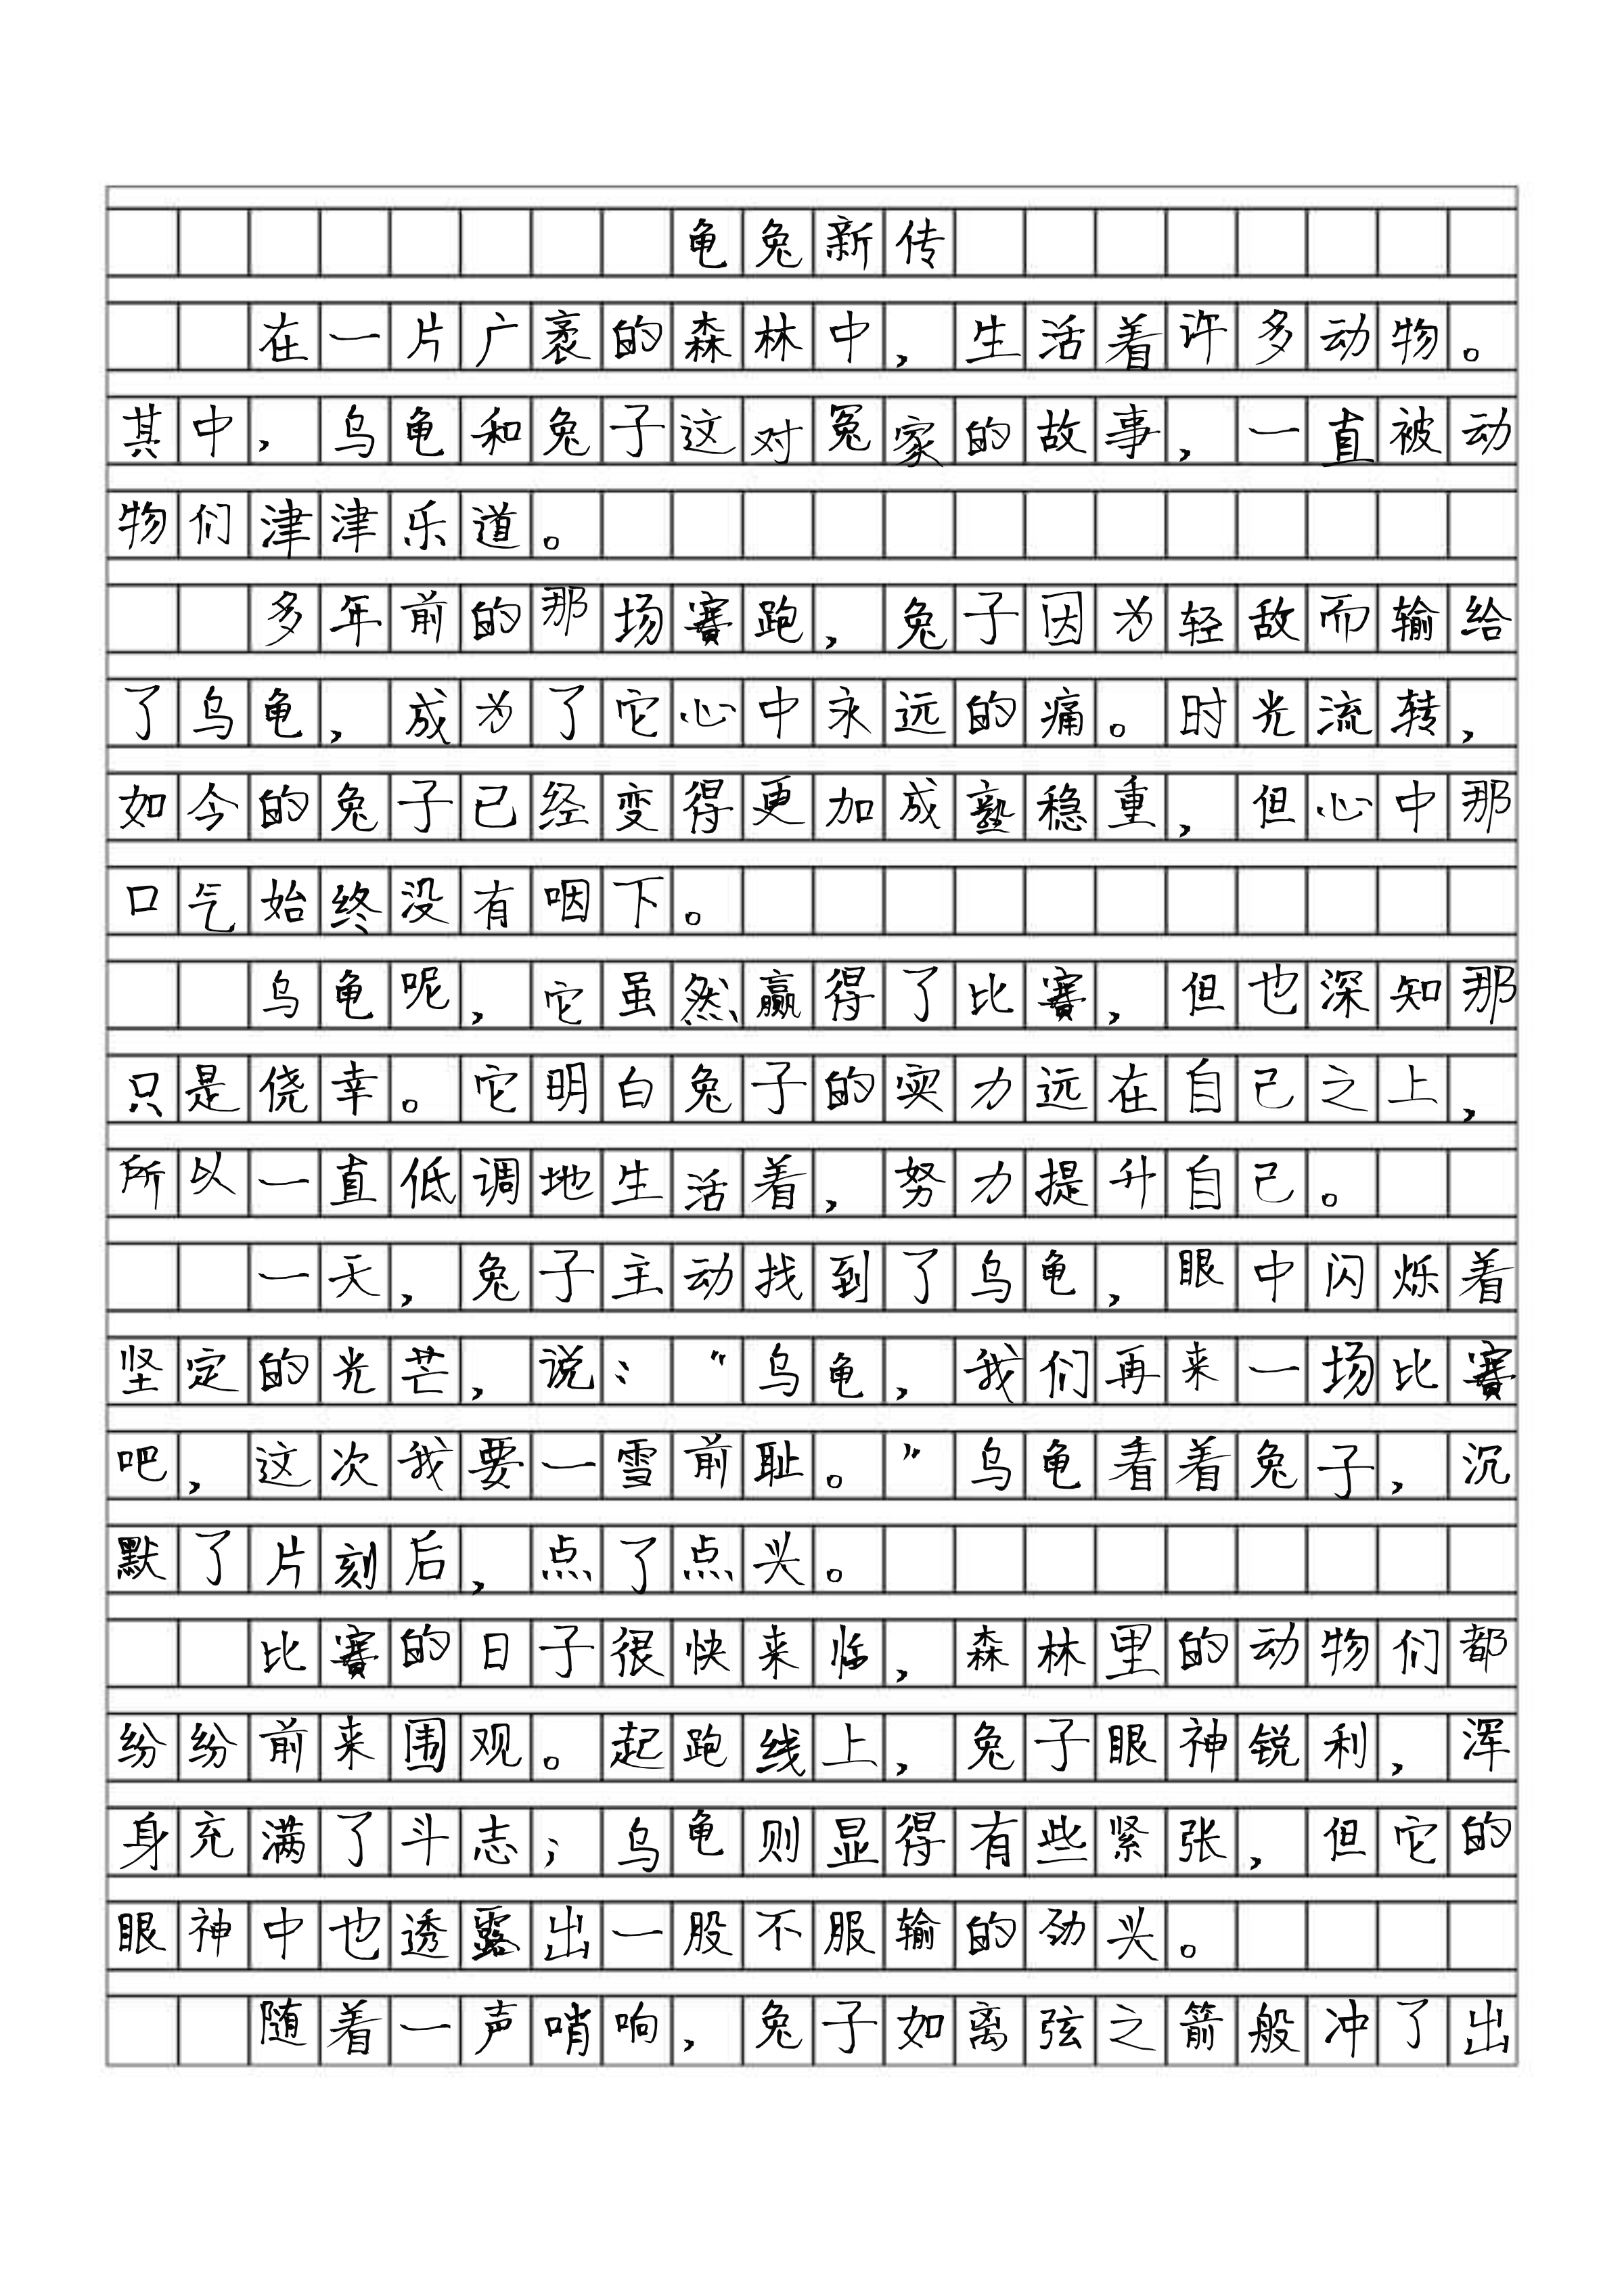 龟兔新传
在一片广袤的森林中，生活着许多动物。
其中，乌龟和兔子这对冤家的故事，一直被动
物们津津乐道。
多年前的那场赛跑，兔子因为轻敌而输给
了乌龟，成为了它心中永远的痛。时光流转，
如今的兔子已经变得更加成熟稳重，但心中那
口气始终没有咽下。
乌龟呢，它虽然赢得了比赛，但也深知那
只是侥幸。它明白兔子的实力远在自己之上，
所以一直低调地生活着，努力提升自己。
一天，兔子主动找到了乌龟，眼中闪烁着
坚定的光芒，说：“乌龟，我们再来一场比赛
吧，这次我要一雪前耻。”乌龟看着兔子，沉
默了片刻后，点了点头。
比赛的日子很快来临，森林里的动物们都
纷纷前来围观。起跑线上，兔子眼神锐利，浑
身充满了斗志；乌龟则显得有些紧张，但它的
眼神中也透露出一股不服输的劲头。
随着一声哨响，兔子如离弦之箭般冲了出